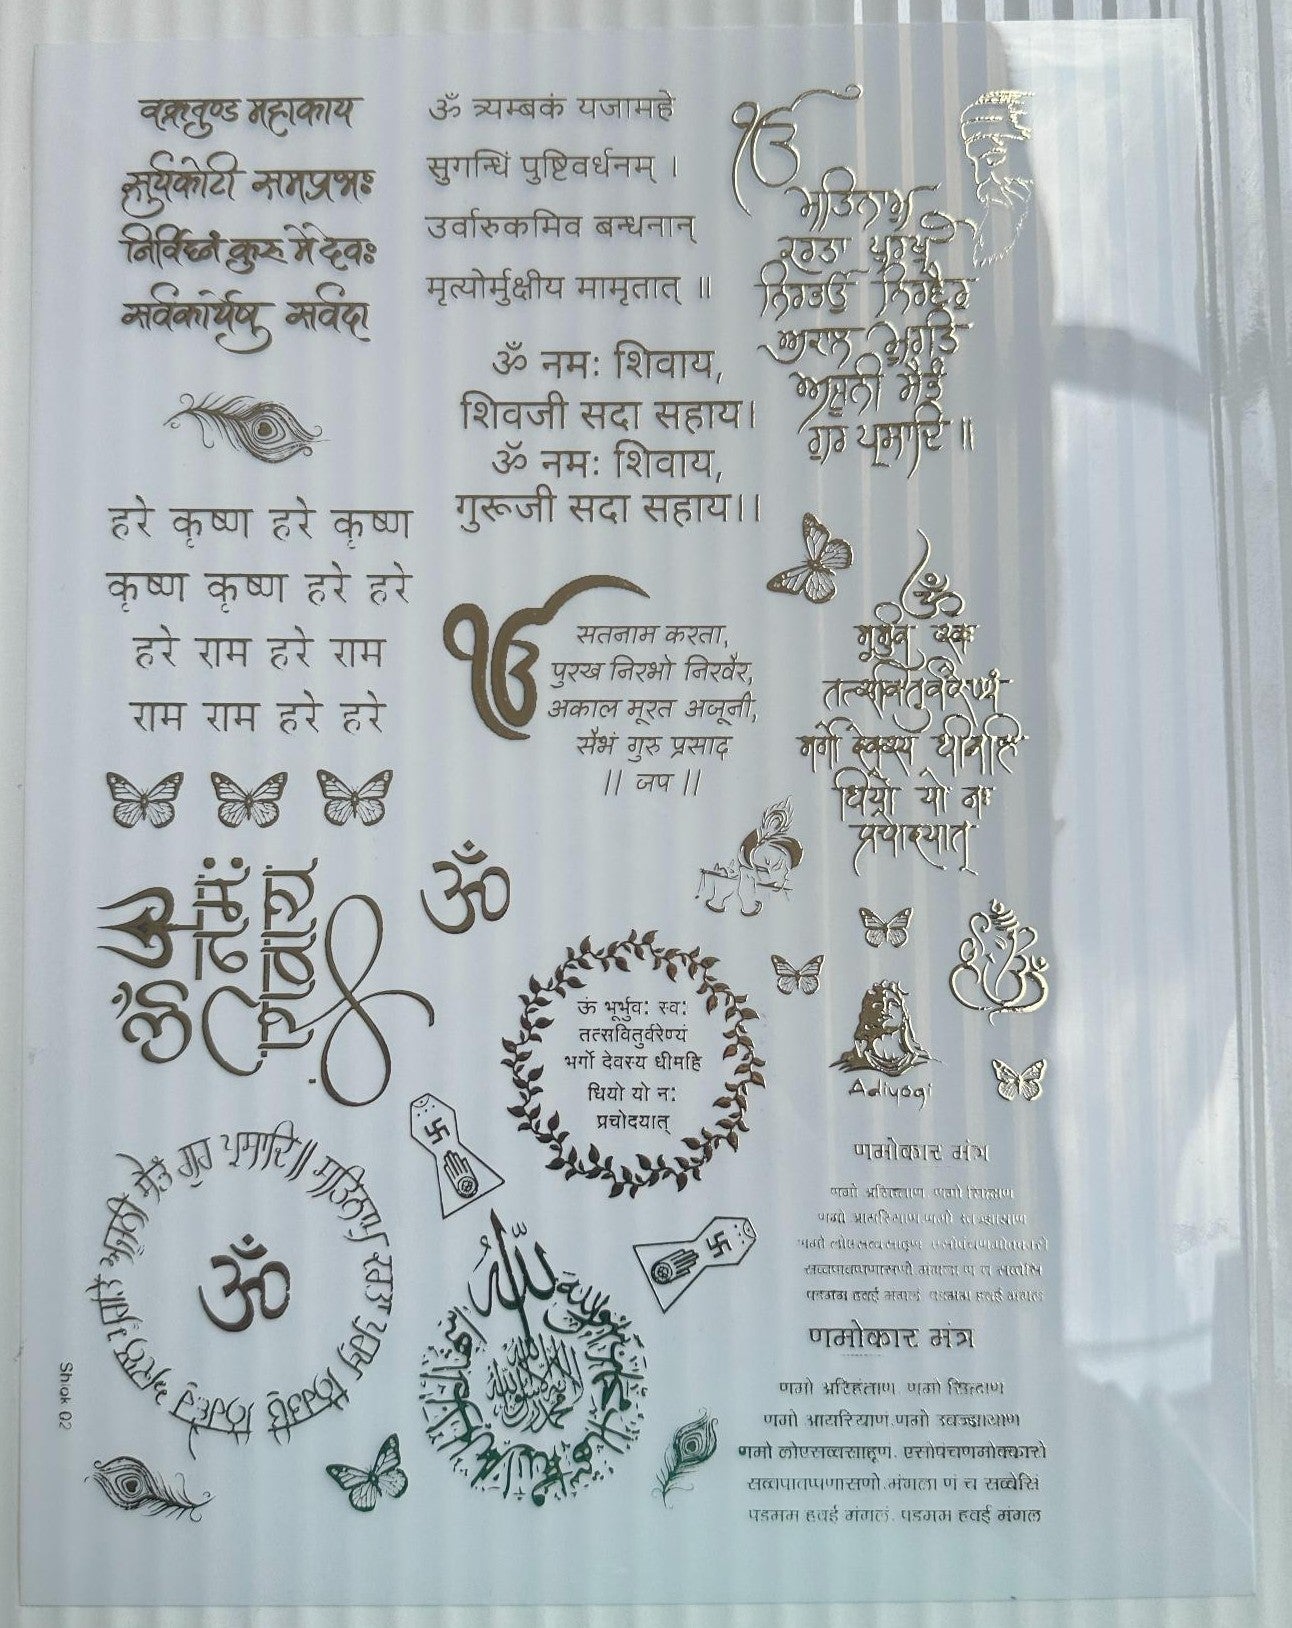 वक्रतुण्ड महाकाय
सुर्यकोटी समप्रभः
निर्विघ्नं कुरु मे देवः
सर्वकार्येषु सर्वदा
ॐ त्र्यम्बकं यजामहे
सुगन्धिं पुष्टिवर्धनम् ।
उर्वारुकमिव बन्धनान्
मृत्योर्मुक्षीय मामृतात् ॥
ॐ नमः शिवाय,
शिवजी सदा सहाय।
ॐ नमः शिवाय,
गुरूजी सदा सहाय।।
ੴ
ਸਤਿਨਾਮੁ
ਕਰਤਾ ਪੁਰਖੁ
ਨਿਰਭਉ ਨਿਰਵੈਰੁ
ਅਕਾਲ ਮੂਰਤਿ
ਅਜੂਨੀ ਸੈਭੰ
ਗੁਰ ਪ੍ਰਸਾਦਿ ॥
हरे कृष्ण हरे कृष्ण
कृष्ण कृष्ण हरे हरे
हरे राम हरे राम
राम राम हरे हरे
ੴ
सतनाम करता,
पुरख निरभो निरवैर,
अकाल मूरत अजूनी,
सैभं गुरु प्रसाद
|| जप ||
ॐ
भूर्भुव स्वः
तत्सवितुर्वरेण्यं
भर्गो देवस्य धीमहि
धियो यो नः
प्रचोदयात्
ॐ नमः शिवाय
ॐ
ऊं भूर्भुवः स्वः
तत्सवितुर्वरेण्यं
भर्गो देवस्य धीमहि
धियो यो नः
प्रचोदयात्
ॐ
Adiyogi
ਸਤਿਨਾਮੁ ਕਰਤਾ ਪੁਰਖੁ ਨਿਰਭਉ ਨਿਰਵੈਰੁ ਅਕਾਲ ਮੂਰਤਿ ਅਜੂਨੀ ਸੈਭੰ ਗੁਰ ਪ੍ਰਸਾਦਿ॥
ॐ
الله
णमोकार मंत्र
णमो अरिहंताण. णमो सिद्धाण
णमो आयरियाण.णमो उवज्झायाण
णमो लोएसव्वसाहूण. एसोपंचणमोक्कारो
सव्वपावप्पणासणो मंगला णं च सव्वेसिं
पडमम हवई मंगलं. पडमम हवई मंगल
णमोकार मंत्र
णमो अरिहंताण. णमो सिद्धाण
णमो आयरियाणं.णमो उवज्झायाण
णमो लोएसव्वसाहूण. एसोपंचणमोक्कारो
सव्वपावप्पणासणो.मंगला णं च सव्वेसिं
पडमम हवई मंगलं. पडमम हवई मंगल
Shlok 02